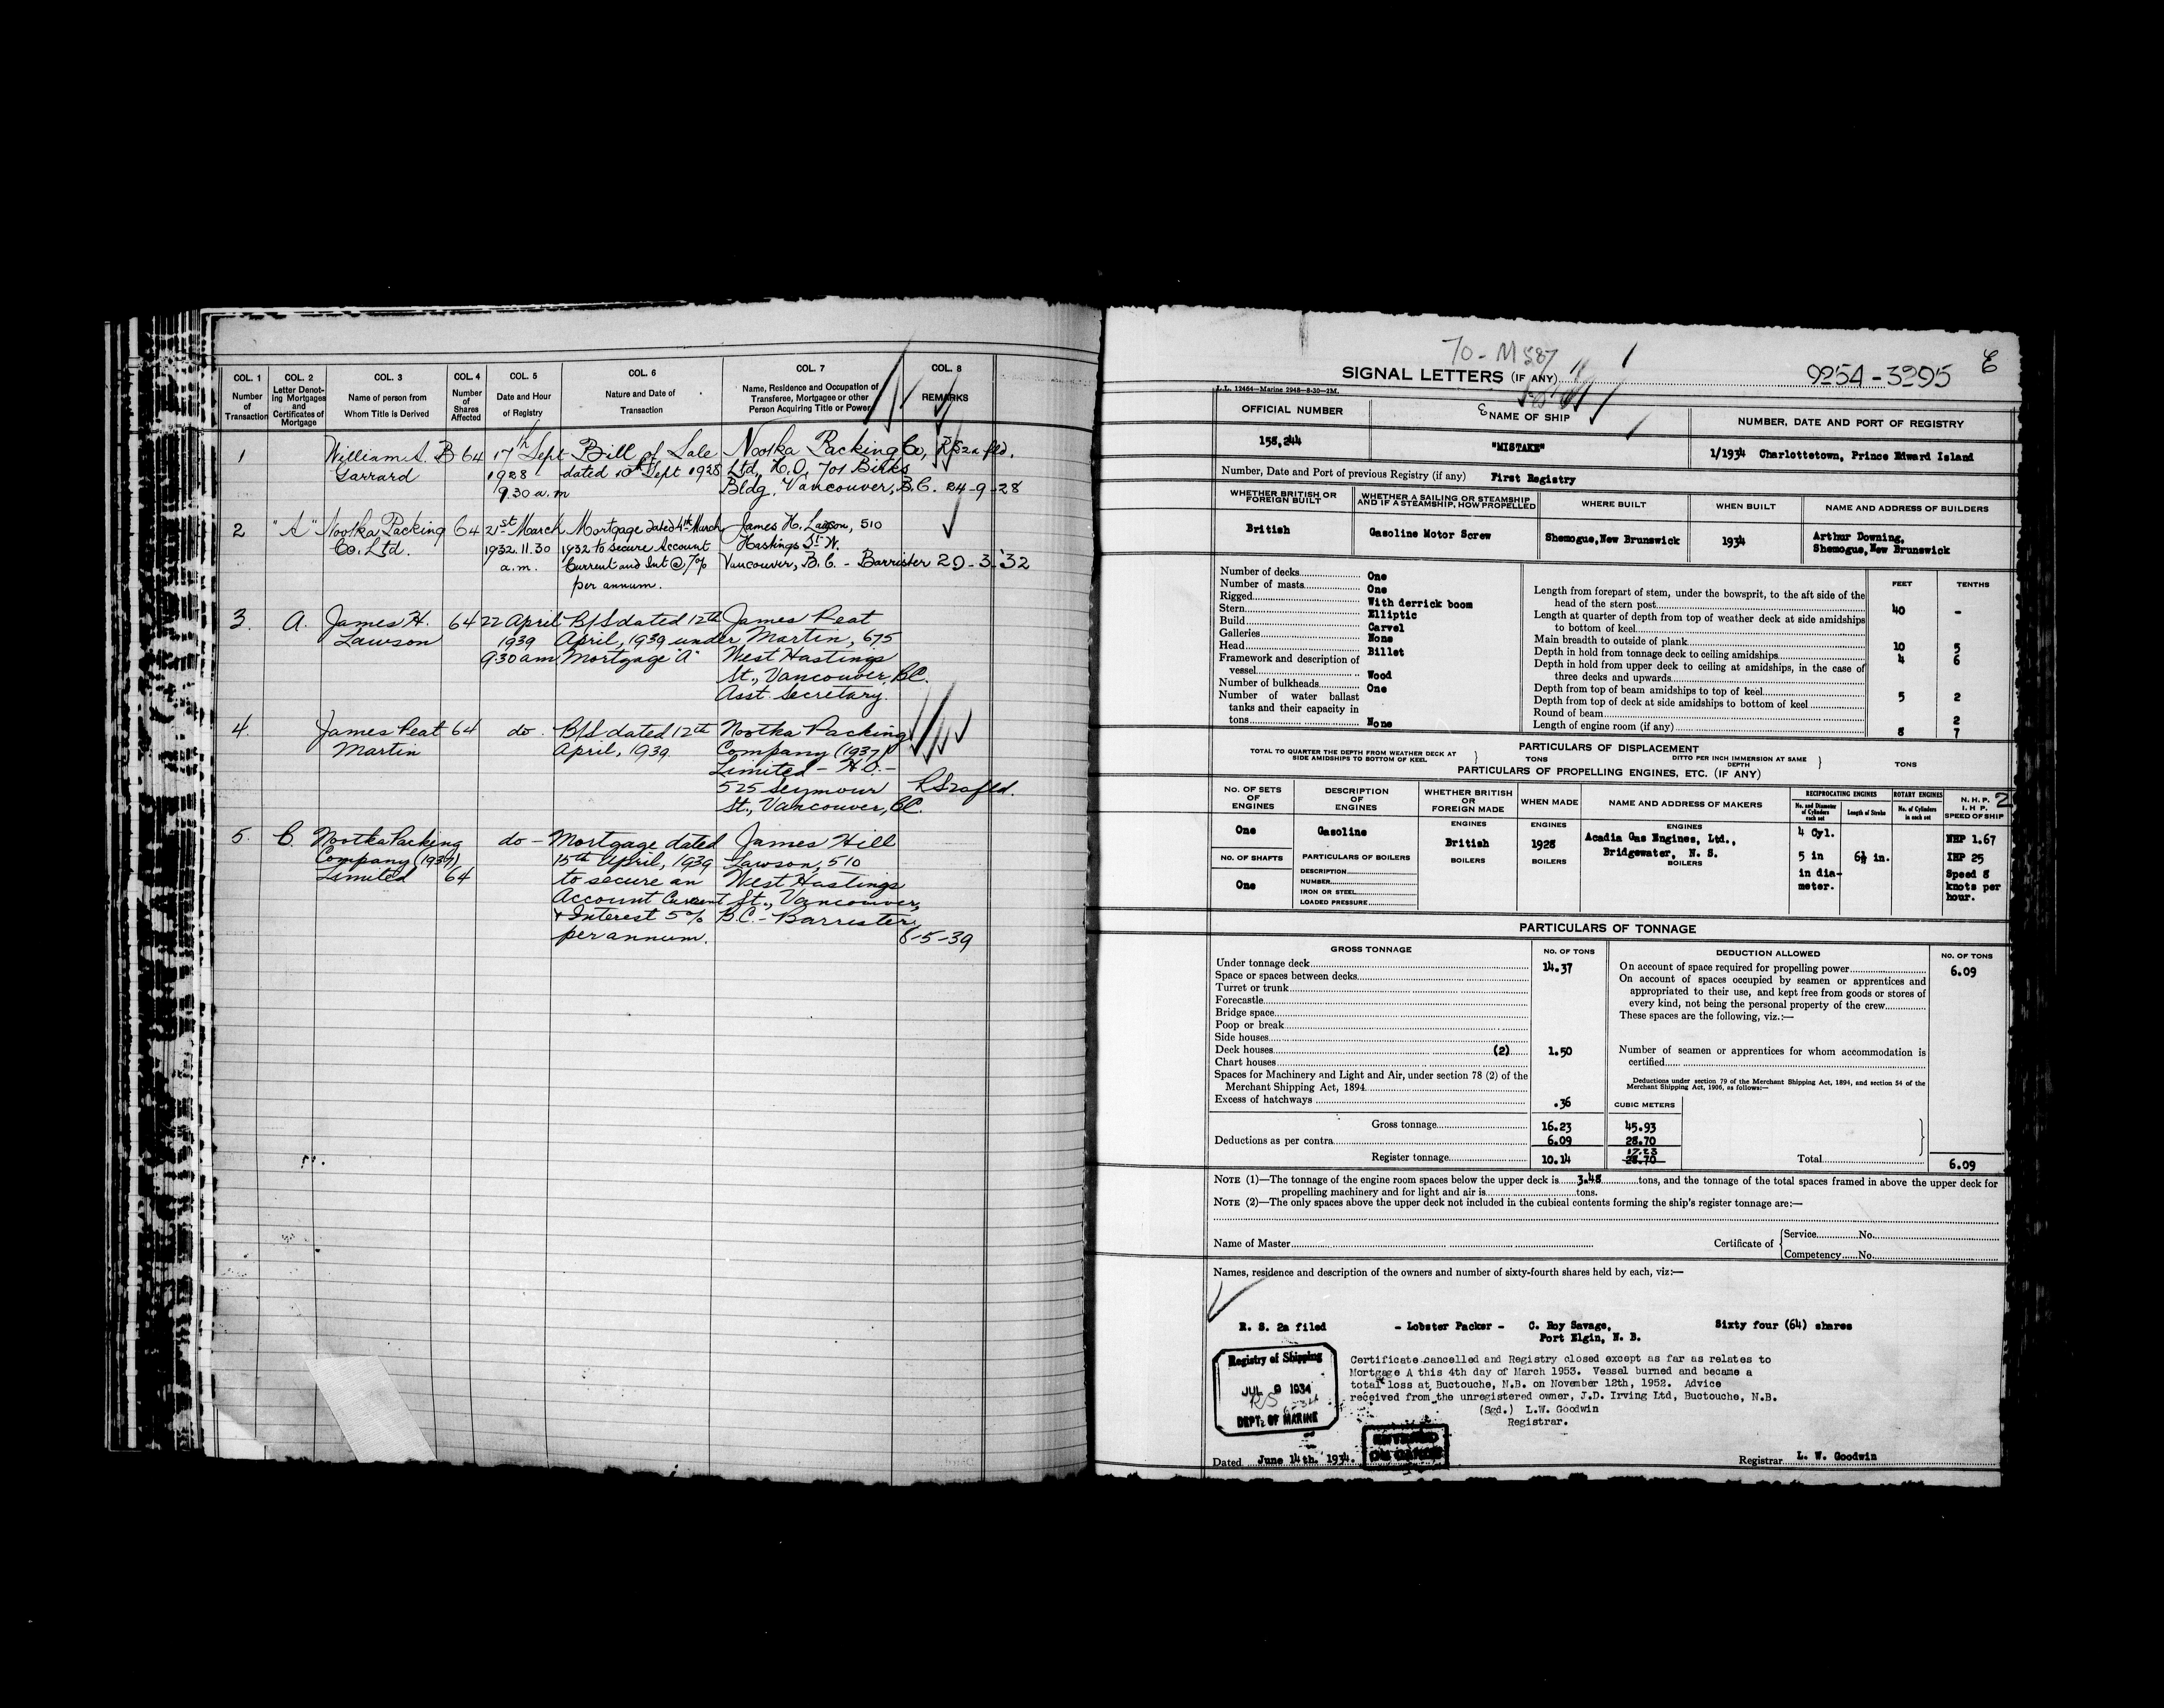 COL. 1 COL. 2 COL. 3 COL. 4 COL. 5 COL. 6 COL. 7 COL. 8
Number of Transaction
Letter Denoting Mortgages and Certificates of Mortgage
Name of person from Whom Title is Derived
Number of Shares Affected
Date and Hour of Registry
Nature and Date of Transaction
Name, Residence and Occupation of Transferee, Mortgagee or other Person Acquiring Title or Power
REMARKS
1 William S. B 64 17th Sept Bill of Sale Nootka Packing Co, RS2a fld.
Garrard 1928 dated 10th Sept 1928 Ltd, H.O. 701 Birks
9.30 a.m Bldg. Vancouver, B.C. 24-9-28
2 "A" Nootka Packing 64 21st March Mortgage dated 4th March James H. Lawson, 510
Co. Ltd. 1932. 11.30 1932 to secure Account Hastings St W.
a.m. Current and Int @ 7% Vancouver, B.C. - Barrister 29-3-'32
per annum.
3. A. James H. 64 22 April B/S dated 12th James Peat
Lawson 1939 April, 1939 under Martin, 675
9.30 am Mortgage "A" West Hastings
St., Vancouver, B.C.
Asst. Secretary.
4. James Peat 64 do. B/S dated 12th Nootka Packing
Martin April, 1939. Company (1937)
Limited - H.O. -
525 Seymour RS2a fld.
St., Vancouver, BC.
5. C. Nootka Packing do - Mortgage dated James Hill
Company (1937) 15th April, 1939 Lawson, 510
Limited 64 to secure an West Hastings
Account Current St., Vancouver,
& Interest 5% B.C. - Barrister
per annum. 8-5-39
70-M587
SIGNAL LETTERS (IF ANY) 9254-3295
L.L. 12464—Marine 2948—8-30—2M.
OFFICIAL NUMBER NAME OF SHIP NUMBER, DATE AND PORT OF REGISTRY
158,244 "MISTAKE" 1/1934 Charlottetown, Prince Edward Island
Number, Date and Port of previous Registry (if any) First Registry
WHETHER BRITISH OR FOREIGN BUILT
WHETHER A SAILING OR STEAMSHIP AND IF A STEAMSHIP, HOW PROPELLED
WHERE BUILT WHEN BUILT NAME AND ADDRESS OF BUILDERS
British Gasoline Motor Screw Shemogue, New Brunswick 1934 Arthur Downing,
Shemogue, New Brunswick
Number of decks One
Number of masts One
Rigged With derrick boom
Stern Elliptic
Build Carvel
Galleries None
Head Billet
Framework and description of
vessel Wood
Number of bulkheads One
Number of water ballast
tanks and their capacity in
tons None
FEET TENTHS
Length from forepart of stem, under the bowsprit, to the aft side of the
head of the stern post 40 -
Length at quarter of depth from top of weather deck at side amidships
to bottom of keel
Main breadth to outside of plank 10 5
Depth in hold from tonnage deck to ceiling amidships 4 6
Depth in hold from upper deck to ceiling at amidships, in the case of
three decks and upwards
Depth from top of beam amidships to top of keel 5 2
Depth from top of deck at side amidships to bottom of keel
Round of beam 2
Length of engine room (if any) 8 7
PARTICULARS OF DISPLACEMENT
TOTAL TO QUARTER THE DEPTH FROM WEATHER DECK AT SIDE AMIDSHIPS TO BOTTOM OF KEEL TONS DITTO PER INCH IMMERSION AT SAME DEPTH TONS
PARTICULARS OF PROPELLING ENGINES, ETC. (IF ANY)
NO. OF SETS OF ENGINES
DESCRIPTION OF ENGINES
WHETHER BRITISH OR FOREIGN MADE
WHEN MADE
NAME AND ADDRESS OF MAKERS
RECIPROCATING ENGINES ROTARY ENGINES
No. and Diameter of Cylinders each set
Length of Stroke
No. of Cylinders in each set
N. H. P. I. H. P. SPEED OF SHIP
One Gasoline ENGINES British ENGINES 1928 ENGINES Acadia Gas Engines, Ltd., 4 Cyl. NHP 1.67
NO. OF SHAFTS PARTICULARS OF BOILERS BOILERS BOILERS Bridgewater, N. S. 5 in 6½ in. IHP 25
BOILERS
in dia-
meter.
Speed 8
knots per
hour.
One
DESCRIPTION
NUMBER
IRON OR STEEL
LOADED PRESSURE
PARTICULARS OF TONNAGE
GROSS TONNAGE NO. OF TONS DEDUCTION ALLOWED NO. OF TONS
Under tonnage deck 14.37
Space or spaces between decks
Turret or trunk
Forecastle
Bridge space
Poop or break
Side houses
Deck houses (2) 1.50
Chart houses
Spaces for Machinery and Light and Air, under section 78 (2) of the
Merchant Shipping Act, 1894
Excess of hatchways .36
On account of space required for propelling power 6.09
On account of spaces occupied by seamen or apprentices and
appropriated to their use, and kept free from goods or stores of
every kind, not being the personal property of the crew
These spaces are the following, viz.:—
Number of seamen or apprentices for whom accommodation is
certified
Deductions under section 79 of the Merchant Shipping Act, 1894, and section 54 of the
Merchant Shipping Act, 1906, as follows:—
CUBIC METERS
Gross tonnage 16.23 45.93
Deductions as per contra 6.09 28.70
17.23
Register tonnage 10.14 28.70 Total 6.09
NOTE (1)—The tonnage of the engine room spaces below the upper deck is 3.48 tons, and the tonnage of the total spaces framed in above the upper deck for
propelling machinery and for light and air is tons.
NOTE (2)—The only spaces above the upper deck not included in the cubical contents forming the ship's register tonnage are:—
Name of Master Certificate of Service No.
Competency No.
Names, residence and description of the owners and number of sixty-fourth shares held by each, viz:—
R. S. 2a filed - Lobster Packer - C. Roy Savage, Sixty four (64) shares
Port Elgin, N. B.
Registry of Shipping
JUL 9 1934
DEPT. OF MARINE
Certificate cancelled and Registry closed except as far as relates to
Mortgage A this 4th day of March 1953. Vessel burned and became a
total loss at Buctouche, N.B. on November 12th, 1952. Advice
received from the unregistered owner, J.D. Irving Ltd, Buctouche, N.B.
(Sgd.) L.W. Goodwin
Registrar.
ENTERED
ON CARDS
Dated June 14th. 1934. Registrar L. W. Goodwin